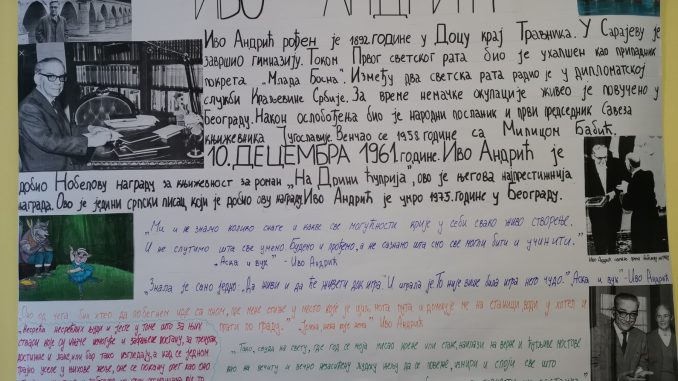 ИВО АНДРИЋ
Иво Андрић рођен је 1892. године у Доцу крај Травника. У Сарајеву је
завршио гимназију. Током Првог светског рата био је ухапшен као припадник
покрета „Млада Босна". Између два светска рата радио је у дипломатској
служби Краљевине Србије. За време немачке окупације живео је повучено у
Београду. Након ослобођења био је народни посланик и први председник Савеза
књижевника Југославије. Венчао се 1958 године са Милицом Бабић.
10. ДЕЦЕМБРА 1961. године. Иво Андрић је
добио Нобелову награду за књижевност за роман „На Дрини ћуприја", ово је његова најпрестижнија
награда. Ово је једини српски писац који је добио ову награду. Иво Андрић је умро 1975. године у Београду.
„Ми и не знамо колико снаге и какве све могућности крије у себи свако живо створење.
И не слутимо шта све умемо. Будемо и прођемо, а не сазнамо шта смо све могли бити и учинити."
„Аска и вук" - Иво Андрић
„Знала је само једно: Да живи и да ће живети док игра. И играла је. То није више била игра него чудо." „Аска и вук" - Иво Андрић
Иво Андрић
„Оно од чега бих хтео да побегнем иде са мном,
врати по граду." Иво Андрић
„Несрећа несрећних људи и јесте у томе што за њих
ствари које су иначе немогуће и забрањене постану, за тренутак,
достижне и лаке, или бар тако изгледају, а кад се једном
трајно уселе у њихове жеље, оне се покажу опет као оно
„Тако, свуда на свету, где год се моја мисао крене или стане, наилази на верне и ћутљиве мостове
као на вечиту и вечно незаситену људску жељу да се повеже, измири и споји све што